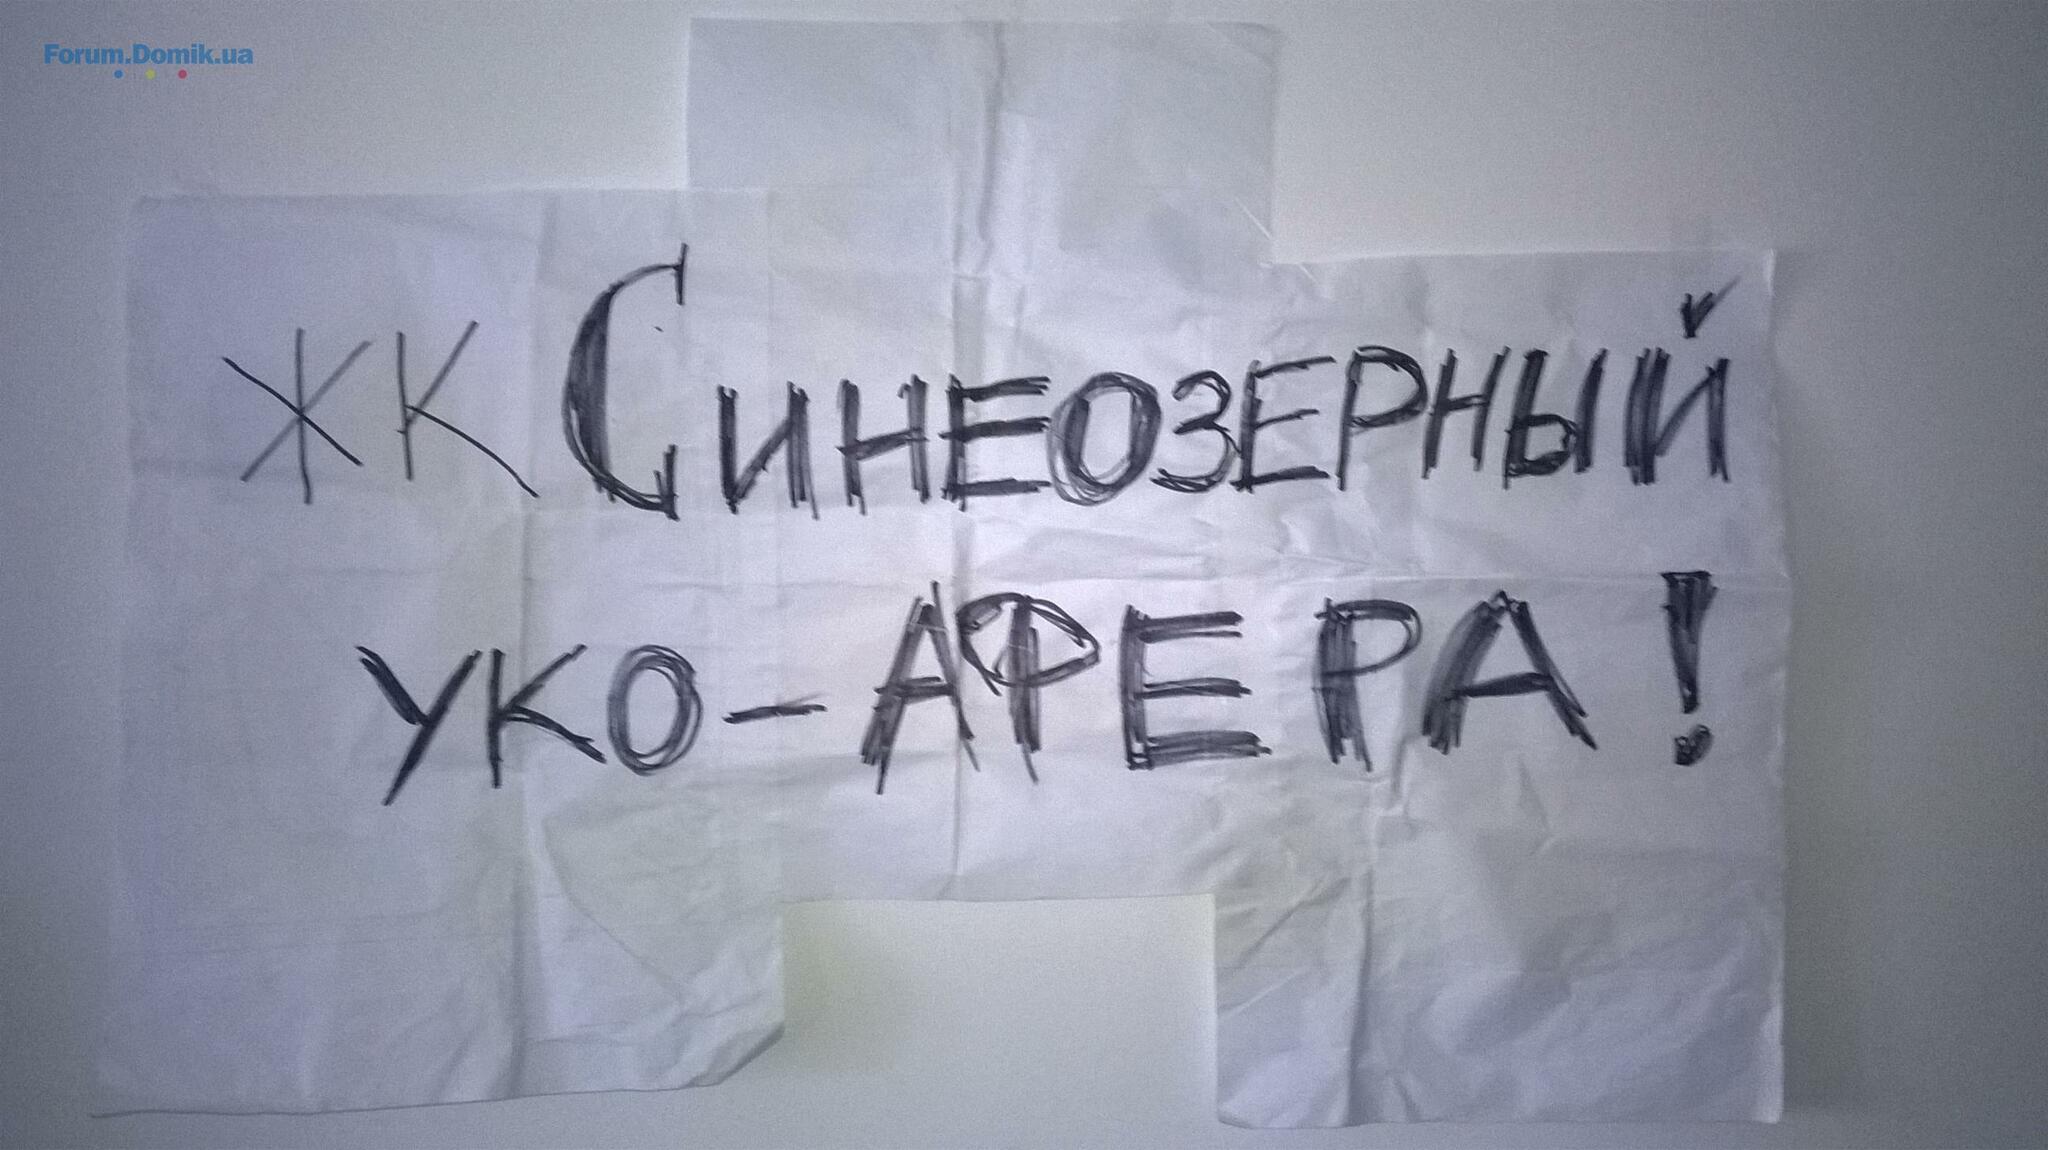 Forum.Domik.ua
ЖК Синеозерный
УКО-АФЕРА!